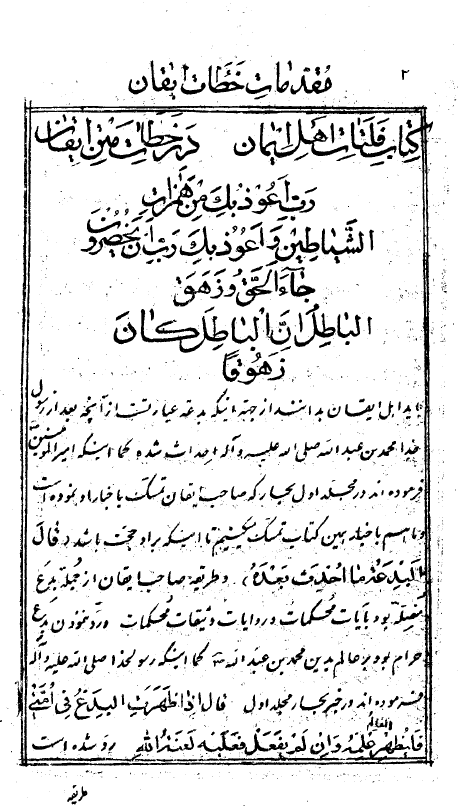 ۲
مقدمات خطات ایقان
کتاب فلتات اهل ایمان در خطات متن ایقان
رَبِّ اَعُوذُ بِكَ مِن هَمَزاتِ
الشَّیاطینِ وَ اَعُوذُ بِكَ رَبِّ اَن یَحضُرونِ
جٰاءَ الحَقُّ وَ زَهَقَ
الباطِلُ اِنَّ الباطِلَ کانَ
زَهُوقًا
باید اهل ایقان بدانند از جهة اینکه بدعة عبارتست از آنچه بعد از رسول
خدا محمد بن عبد الله صلی الله علیه و آله احداث شده کما اینکه امیر المؤمنین
فرموده اند در مجلد اول بحار که صاحب ایقان تمسک باخبار او نموده است
و ما هم باخبار همین کتاب تمسک میکنیم تا اینکه بر او حجت باشد قال
البدعة ما احدث بعده و طریقه صاحب ایقان از جمله بدع
بود بآیات محکمات و روایات و ثیقات محکمات و رد نمودن بدع
حرام بود بر عالم بدین محمد بن عبد الله کما اینکه رسول خدا صلی الله علیه و آله
فرموده اند در خبر بحار مجلد اول قال اذا ظهرت البدع فی اُمّتی
فلیظهر العالم علمه و ان لم یفعل فعلیه لعنة الله رد شده است
طریقه